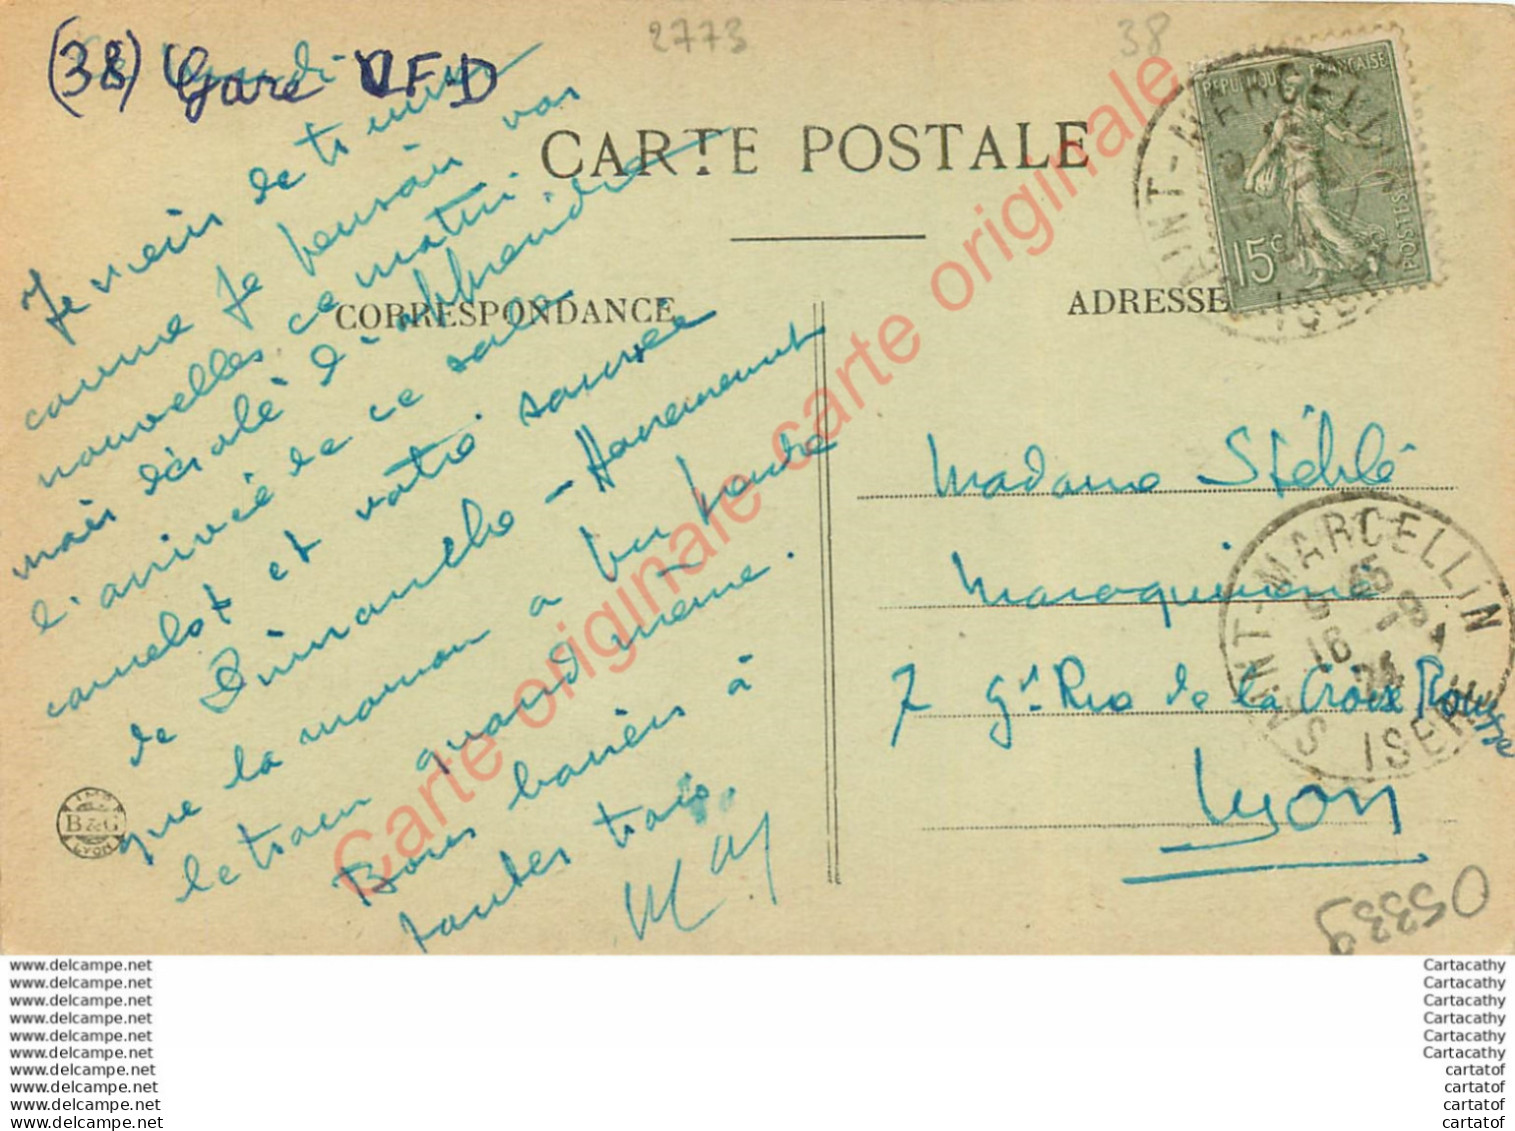 2773
38
(38) Gare VFD
CARTE POSTALE
CORRESPONDANCE
ADRESSE
Je viens de trouver
comme je pensais vos
nouvelles ce matin
mais désolé d'apprendre
l'arrivée de ce sale
camelot et votre soirée
de Dimanche - Heureusement
que la maman a pu prendre
le train quand même.
Bons baisers à
toutes trois.
May
RÉPUBLIQUE FRANÇAISE
POSTES
15c
SAINT-MARCELLIN
ISERE
Madame Stéhlé
Maroquinerie
7 Gde Rue de la Croix Rousse
Lyon
SAINT-MARCELLIN
9 45
16 -9
24
ISERE
IMP.
B&G
LYON
05339
Carte originale carte originale carte originale
www.delcampe.net
www.delcampe.net
www.delcampe.net
www.delcampe.net
www.delcampe.net
www.delcampe.net
www.delcampe.net
www.delcampe.net
www.delcampe.net
www.delcampe.net
Cartacathy
Cartacathy
Cartacathy
Cartacathy
Cartacathy
Cartacathy
cartatof
cartatof
cartatof
cartatof